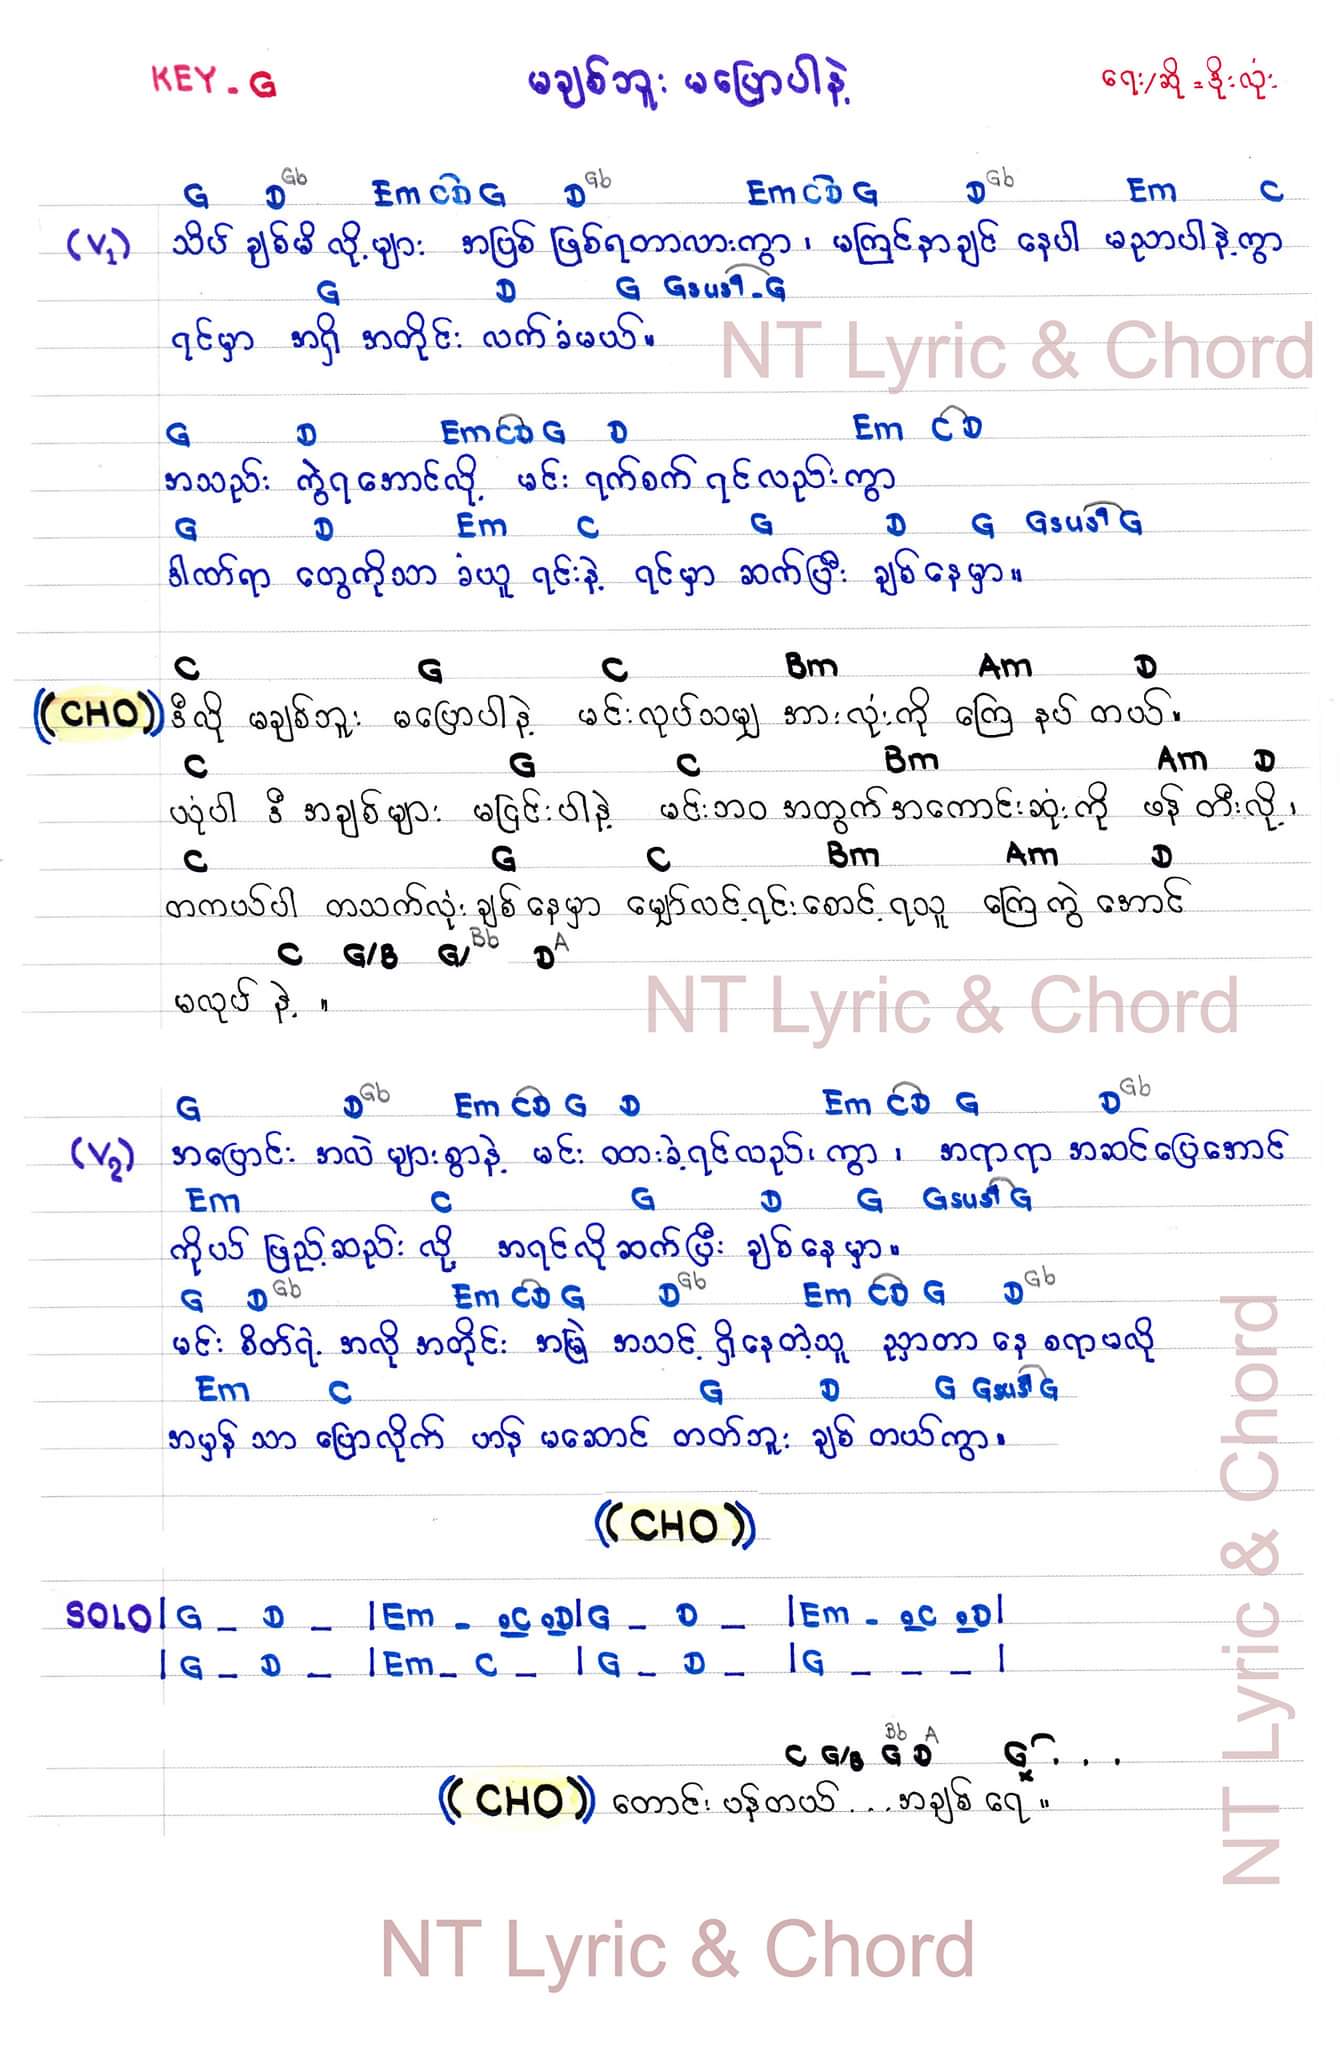 KEY - G မချစ်ဘူး မပြောပါနဲ့ ရေး/ဆို = ဒိုးလုံး
G D Gb Em C D G D Gb Em C D G D Gb Em C
(V1) သိပ် ချစ်မိ လို့ များ အဖြစ် ဖြစ်ရတာလားကွာ ၊ မကြင်နာချင် နေပါ မညာပါနဲ့ ကွာ
G D G Gsus9 - G
ရင်မှာ အရှိ အတိုင်း လက်ခံမယ်။
NT Lyric & Chord
G D Em C D G D Em C D
အသည်း ကွဲရအောင်လို့ မင်း ရက်စက် ရင်လည်းကွာ
G D Em C G D G Gsus9 G
ဒါဏ်ရာ တွေကိုသာ ခံယူ ရင်းနဲ့ ရင်မှာ ဆက်ပြီး ချစ်နေမှာ။
C G C Bm Am D
(CHO) ဒီလို မချစ်ဘူး မပြောပါနဲ့ မင်းလုပ်သမျှ အားလုံးကို ကြေ နပ် တယ်။
C G C Bm Am D
ယုံပါ ဒီ အချစ်များ မငြင်းပါနဲ့ မင်းဘဝ အတွက်အကောင်းဆုံးကို ဖန် တီးလို့ ၊
C G C Bm Am D
တကယ်ပါ တသက်လုံး ချစ်နေမှာ မျှော်လင့်ရင်း စောင့် ရသူ ကြေကွဲ အောင်
C G/B G/Bb D A
မလုပ် နဲ့ ။
NT Lyric & Chord
G D Gb Em C D G D Em C D G D Gb
(V2) အပြောင်း အလဲ များစွာနဲ့ မင်း ထားခဲ့ရင်လည်း ကွာ ၊ အရာရာ အဆင်ပြေအောင်
Em C G D G Gsus9 G
ကိုယ် ဖြည့်ဆည်း လို့ အရင်လိုဆက်ပြီး ချစ်နေမှာ။
G D Gb Em C D G D Gb Em C D G D Gb
မင်း စိတ်ရဲ့ အလို အတိုင်း အမြဲ အသင့် ရှိနေတဲ့သူ ညှာတာ နေ စရာမလို
Em C G D G Gsus9 G
အမှန် သာ ပြောလိုက် ဟန် မဆောင် တတ်ဘူး ချစ် တယ်ကွာ။
(CHO)
SOLO |G _ D _ |Em - C D|G _ D _ |Em - C D|
|G _ D _ |Em _ C _ |G _ D _ |G _ _ _ |
C G/B G Bb D A G . . .
(CHO) တောင်း ပန်တယ် ... အချစ် ရေ ။
NT Lyric & Chord
NT Lyric & Chord